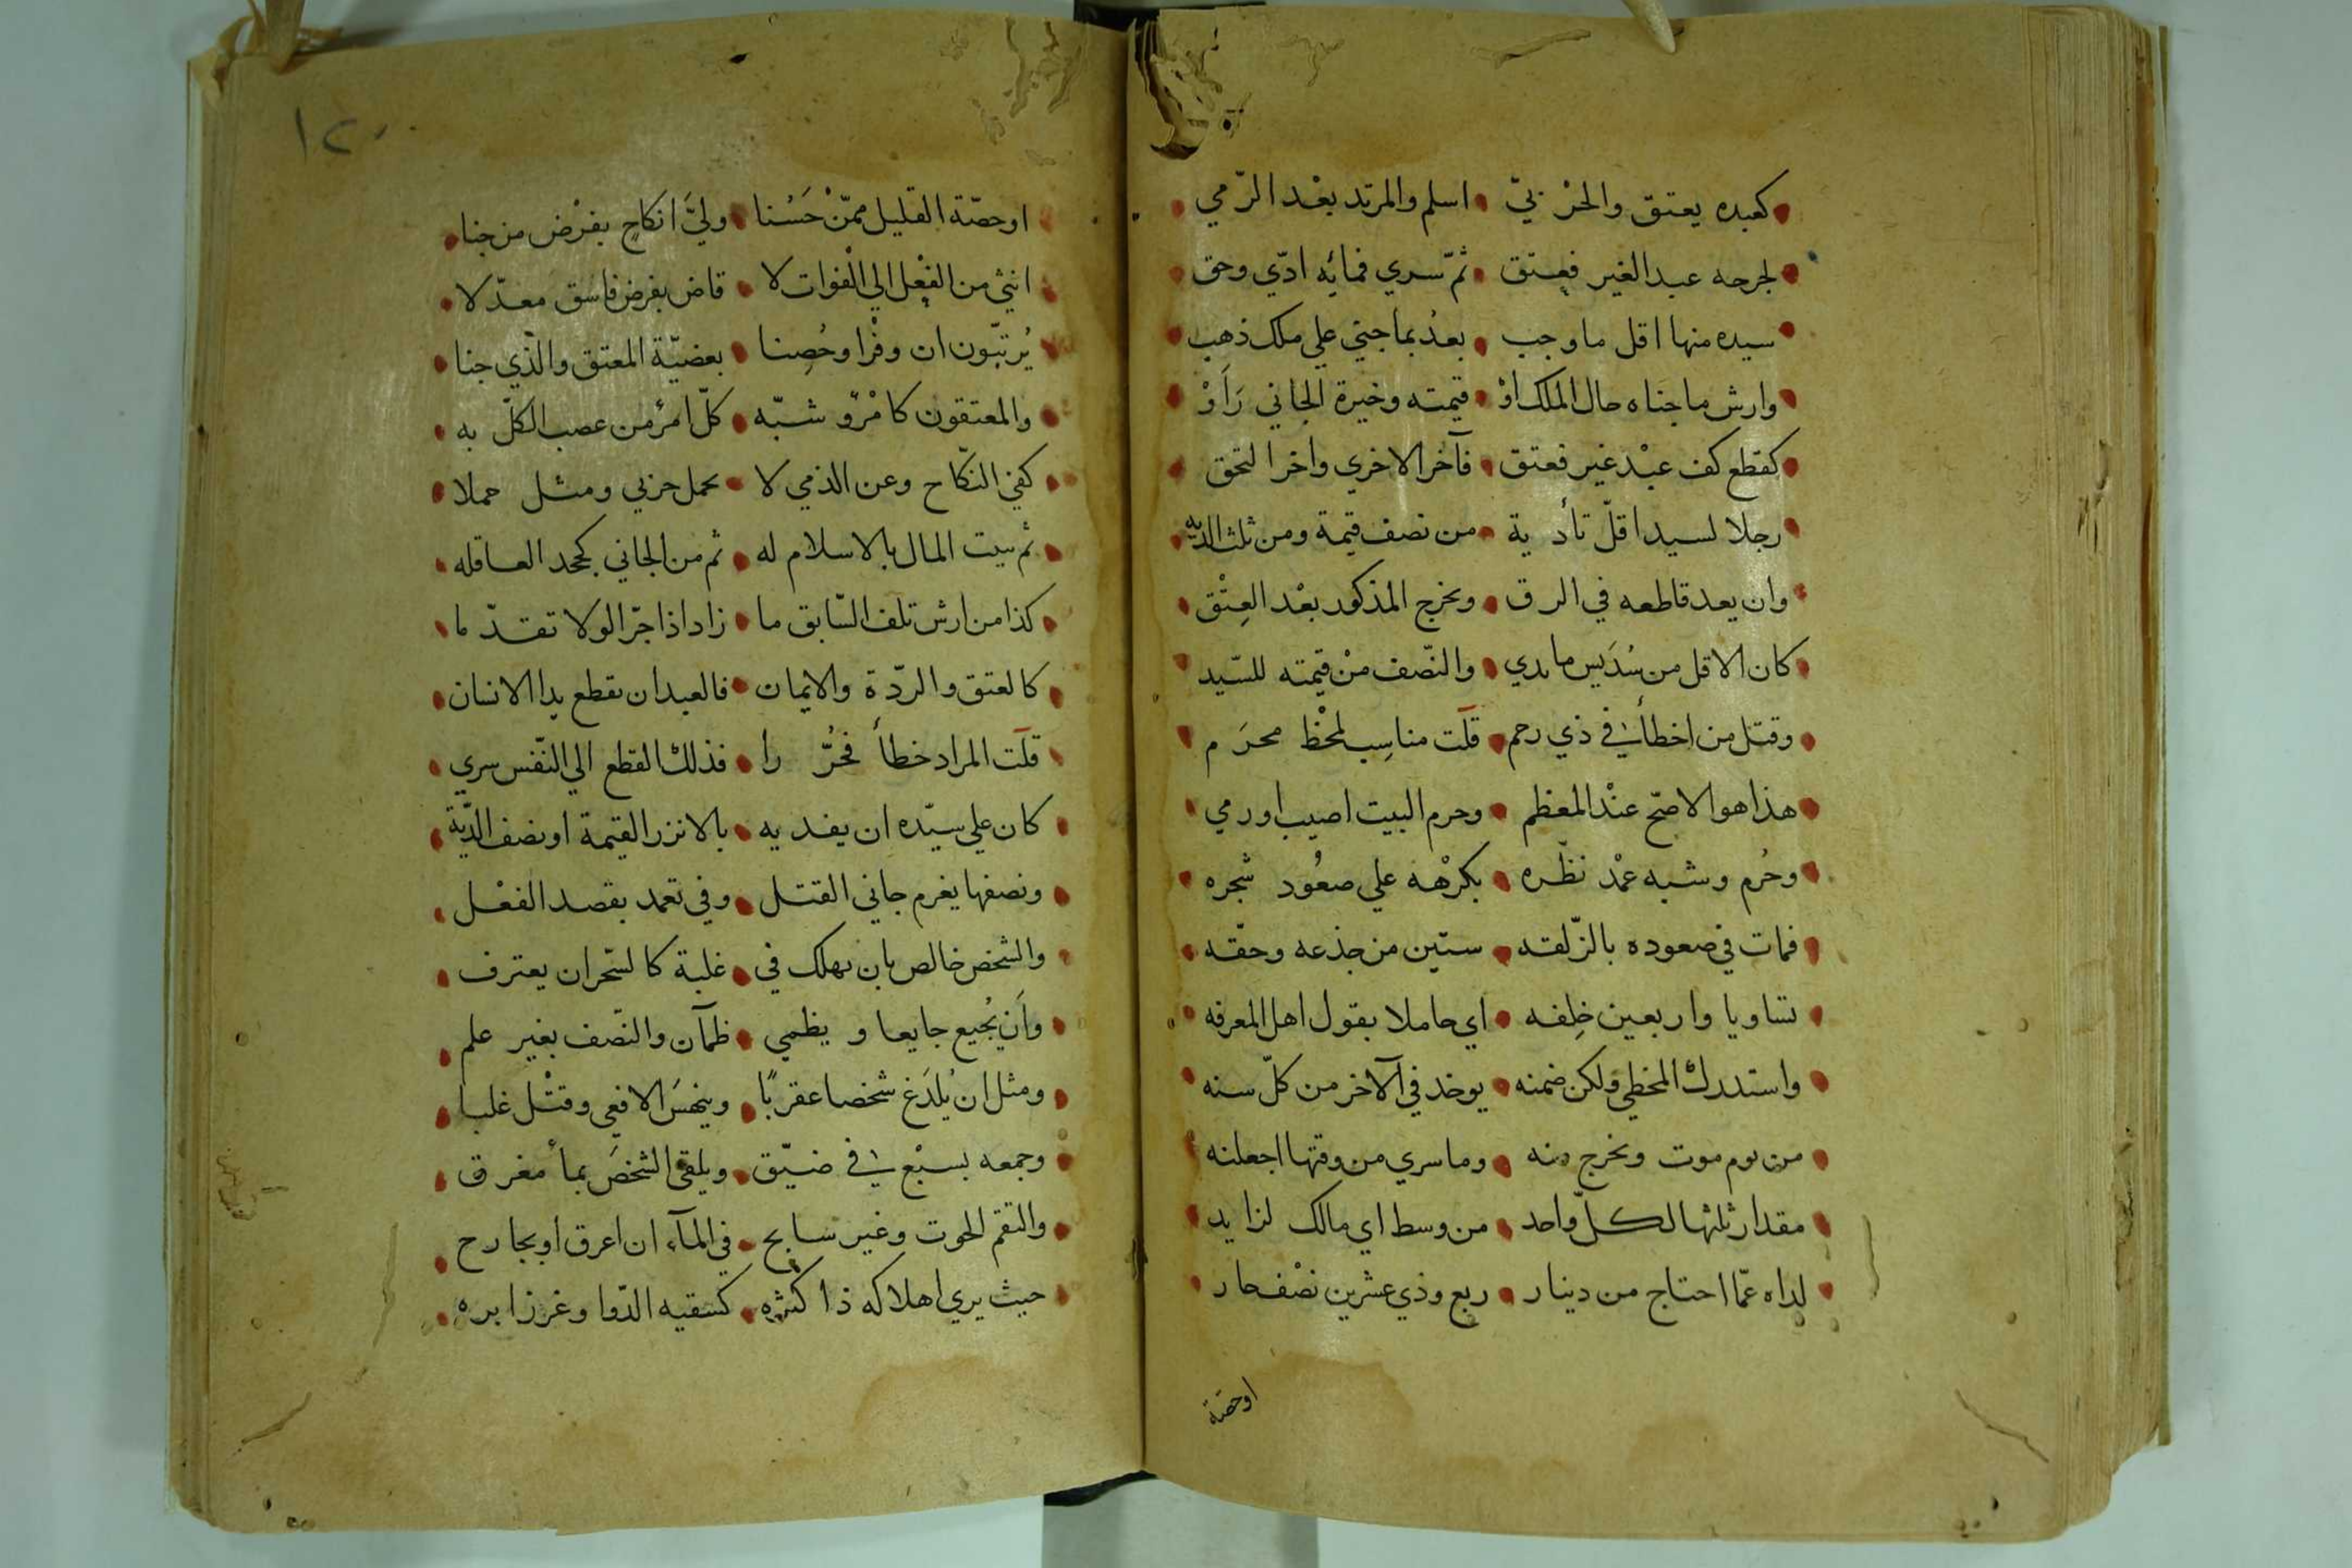 كعبده يعتق والحربيّ اسلم والمرتد بعْد الرّمي
لجرحه عبد الغير فعتق ثمّ سري فمائه ادّي وحق
سيده منها اقل ما وجب بعدُ بما جني علي ملك ذهب
وارش ما جناه حال الملك اوْ قيمته وخيرة الجاني رَاَوْ
كقطع كف عبْد غير فعتق فآخر الاخري واخر التحق
رجلا لسيد اقلّ تأدية من نصف قيمة ومن ثلث الديه
وان يعد قاطعه في الرق ونخرج المذكور بعْد العِتْق
كان الاقل من سُدَيس ما يدي والنّصف منْ قيمته للسّيد
وقتل من اخطأ في ذي رحم قلت مناسِب لمحْظ محرَم
هذا هو الاصحّ عنْد المعظم وحرم البيت اصيب او رمي
وحُرم وشبه عمْد نظّره بكرْهه علي صعُود شجره
فمات في صعوده بالزّلقه ستّين من جذعه وحقّه
تساويا واربعين خلِفه اي حاملا بقول اهل المعرفه
واستدرك المخطي ولكن ضمنه يوخد في الآخر من كلّ سنه
من يوم موت ونخرج منه وما سري من وقتها اجعلنه
مقدار ثلثها لكلّ واحد من وسط اي مالك لزايد
لداه عمّا احتاج من دينار ربع وذي عشرين نصْف جار
اوحصّة
١٢٠
اوحصّة القليل ممّنْ حَسُنا وليَّ انكاح بفرْض من جنا
انثي من الفعْل الي الْفوات لا قاض بفرض فاسق معدّلا
يُرتبّون ان وفْرا وحُصِنا بعضيّة المعتق والّذي جنا
والمعتقون كامْرؤ شبّه كلّ امرُ من عصب الكلّ به
كفي النكّاح وعن الذمي لا يحمل حربي ومثل حملا
ثم بيت المال بالاسلام له ثم من الجاني كجحد العاقله
كذا من ارش تلف السّابق ما زاد اذا جرّ الولا تقدّما
كالعتق والردّة والايمان فالعبد ان يقطع يدا الانسان
قلت المراد خطأ فحُرِّرا فذلك القطع الي النّفس سري
كان علي سيّده ان يفديه بالانزر القيمة او نصف الدّية
ونصفها يغرم جاني القتل وفي تعمد بقصد الفعْل
والشخص خالص بان يهلك في غلبة كالسّحر ان يعترف
واَن يُجيع جايعا ويظمي ظمآن والنّصف بغير علم
ومثل ان يُلدَغ شخصا عقربًا وينهسَ الافعي وقتْل غلبا
وجمعه بسبْع في ضيّق ويلقي الشخصَ بمأ مغرق
والتقم الحوت وغير سابح في المآء ان اغرق او بجارح
حيث يري اهلاكه ذا كثره كسقيه الدّوا وغرز ابره